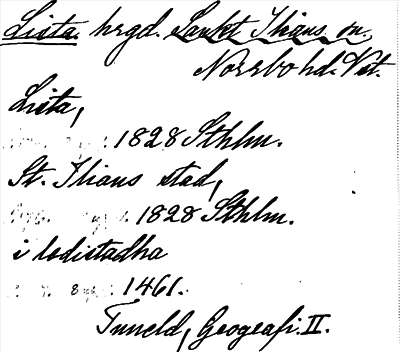 Lista hrgd. Sankt Ilians sn.
Norrbo hd. Vst.
Lista,
1828 Sthlm.
St. Ilians stad,
1828 Sthlm.
i lodistadha
1461.
Tuneld, Geografi. II.